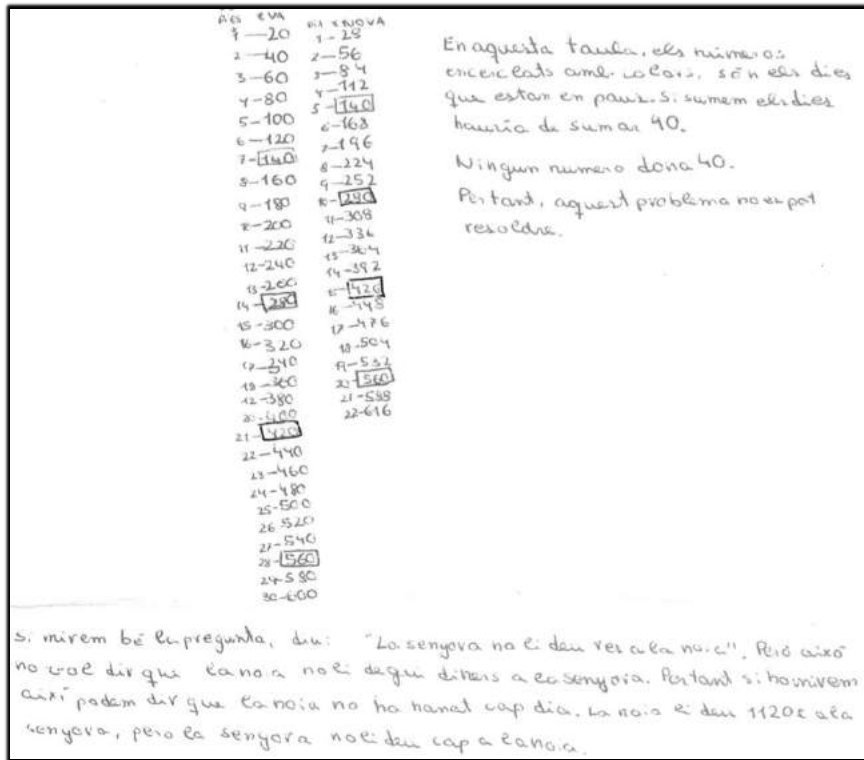 DIES EVA
1-20
2-40
3-60
4-80
5-100
6-120
7-140
8-160
9-180
10-200
11-220
12-240
13-260
14-280
15-300
16-320
17-340
18-360
12-380
20-400
21-420
22-440
23-460
24-480
25-500
26 520
27-540
28-560
24-580
30-600
DIA RNOVA
1-28
2-56
3-84
4-112
5-140
6-168
7-196
8-224
9-252
10-280
11-308
12-336
13-364
14-392
15-420
16-448
17-476
18-504
19-532
20-560
21-588
22-616
En aquesta taula, els números
encerclats amb colors, són els dies
que estan en paus. Si sumem els dies
hauria de sumar 40.
Ningun numero dona 40.
Per tant, aquest problema no es pot
resoldre.
Si mirem bé la pregunta, diu: "La senyora no li deu res a la noia". Però això
no vol dir que la noia no li degui diners a la senyora. Per tant si ho mirem
així podem dir que la noia no ha nanat cap dia. La noia li deu 1120€ a la
senyora, pero la senyora no li deu cap a la noia.